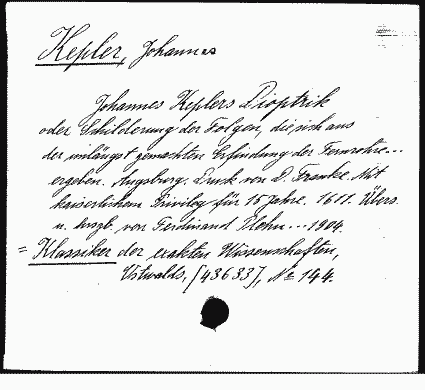 Kepler, Johannes
Johannes Keplers Dioptrik
oder Schilderung der Folgen, die sich aus
der unlängst gemachten Erfindung der Fernrohre...
ergeben. Augsburg. Druk von D. Franke. Mit
kaiserlichem Privileg für 15 Jahre. 1611. Übers.
u. hrszb. von Ferdinand Plehn... 1904.
= Klassiker der exakten Wissenschaften,
Ostwalds, [43633], № 144.